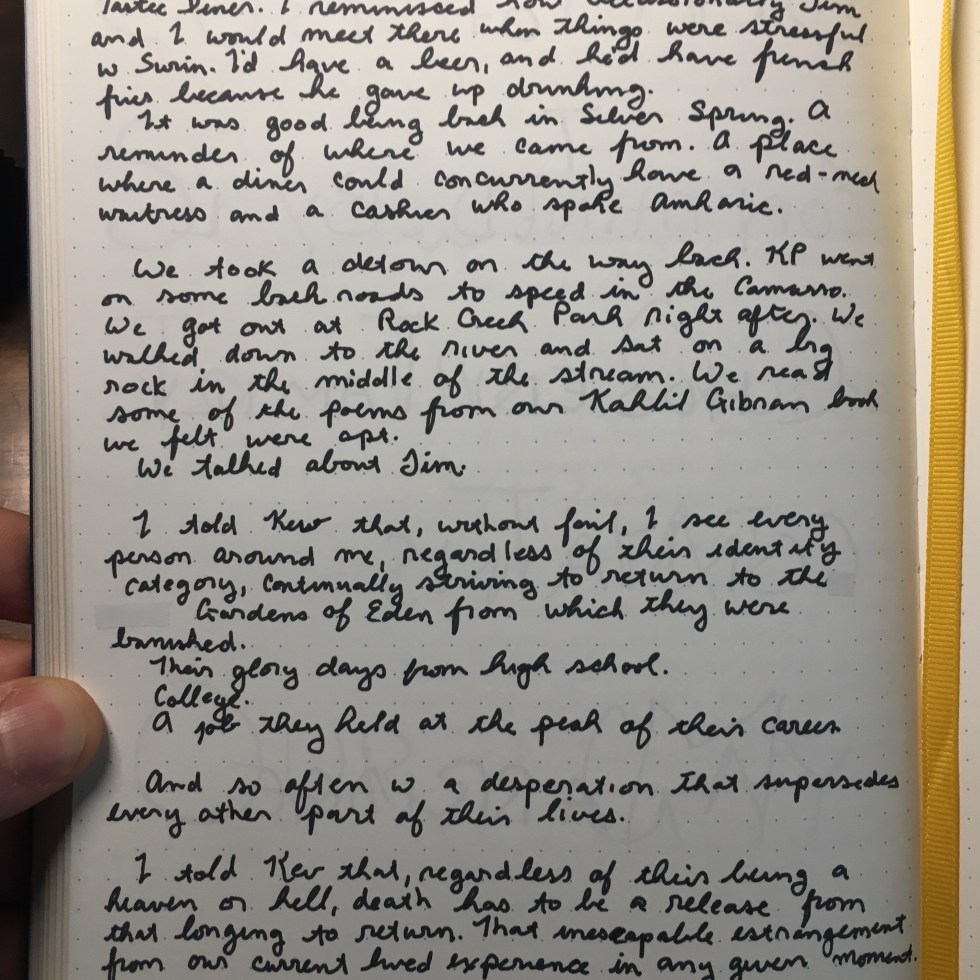 Tastee Diner. I reminissed how occassionally Jim
and I would meet there when things were stressful
w Surin. I'd have a beer, and he'd have french
fries because he gave up drinking.
It was good being back in Silver Spring. A
reminder of where we came from. A place
where a diner could concurrently have a red-neck
waitress and a cashier who spoke Amharic.
We took a detour on the way back. KP went
on some back roads to speed in the Camarro.
We got out at Rock Creek Park right after. We
walked down to the river and sat on a big
rock in the middle of the stream. We read
some of the poems from our Kahlil Gibran book
we felt were apt.
We talked about Jim.
I told Kev that, without fail, I see every
person around me, regardless of their identity
category, continually striving to return to the
Gardens of Eden from which they were
banished.
Their glory days from high school.
College.
A job they held at the peak of their career
And so often w a desperation that supersedes
every other part of their lives.
I told Kev that, regardless of their being a
heaven or hell, death has to be a release from
that longing to return. That inescapable estrangement
from our current lived experience in any given moment.